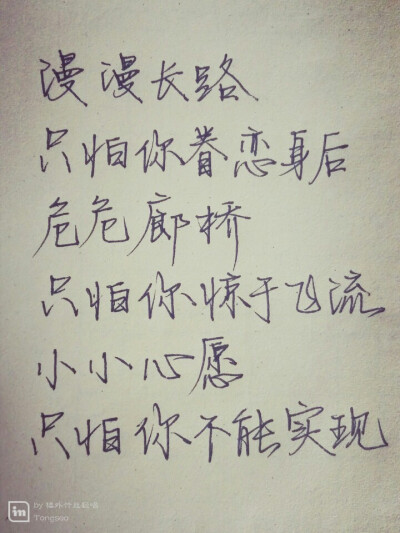 漫漫长路
只怕你眷恋身后
危危廊桥
只怕你惊于飞流
小小心愿
只怕你不能实现
in
by
Tongboo